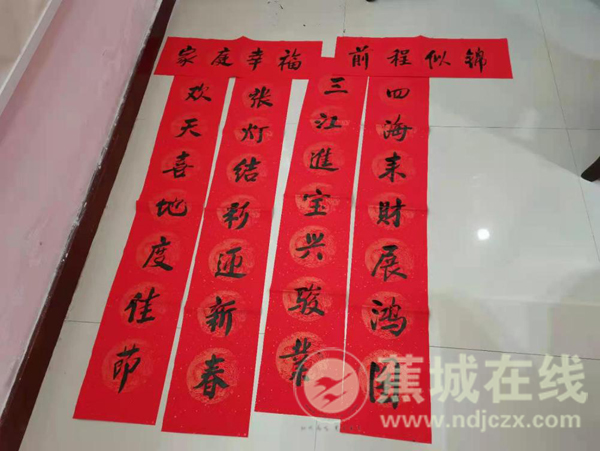 家庭幸福
前程似锦
欢天喜地度佳节
张灯结彩迎新春
三江進宝兴骏业
四海来财展鸿图
蕉城在线
www.ndjczx.com